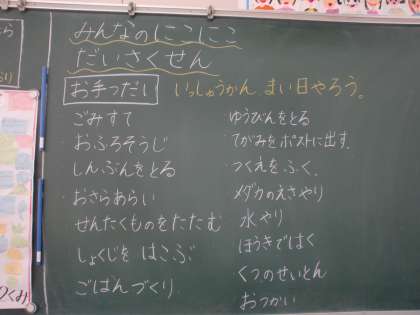 みんなのにこにこ
だいさくせん
お手つだい
いっしゅうかん、まい日やろう。
ごみすて
おふろそうじ
しんぶんをとる
おさらあらい
せんたくものをたたむ
しょくじを はこぶ
ごはんづくり
ゆうびんをとる
てがみをポストに出す。
つくえをふく。
メダカのえさやり
水やり
ほうきではく
くつのせいとん
おつかい